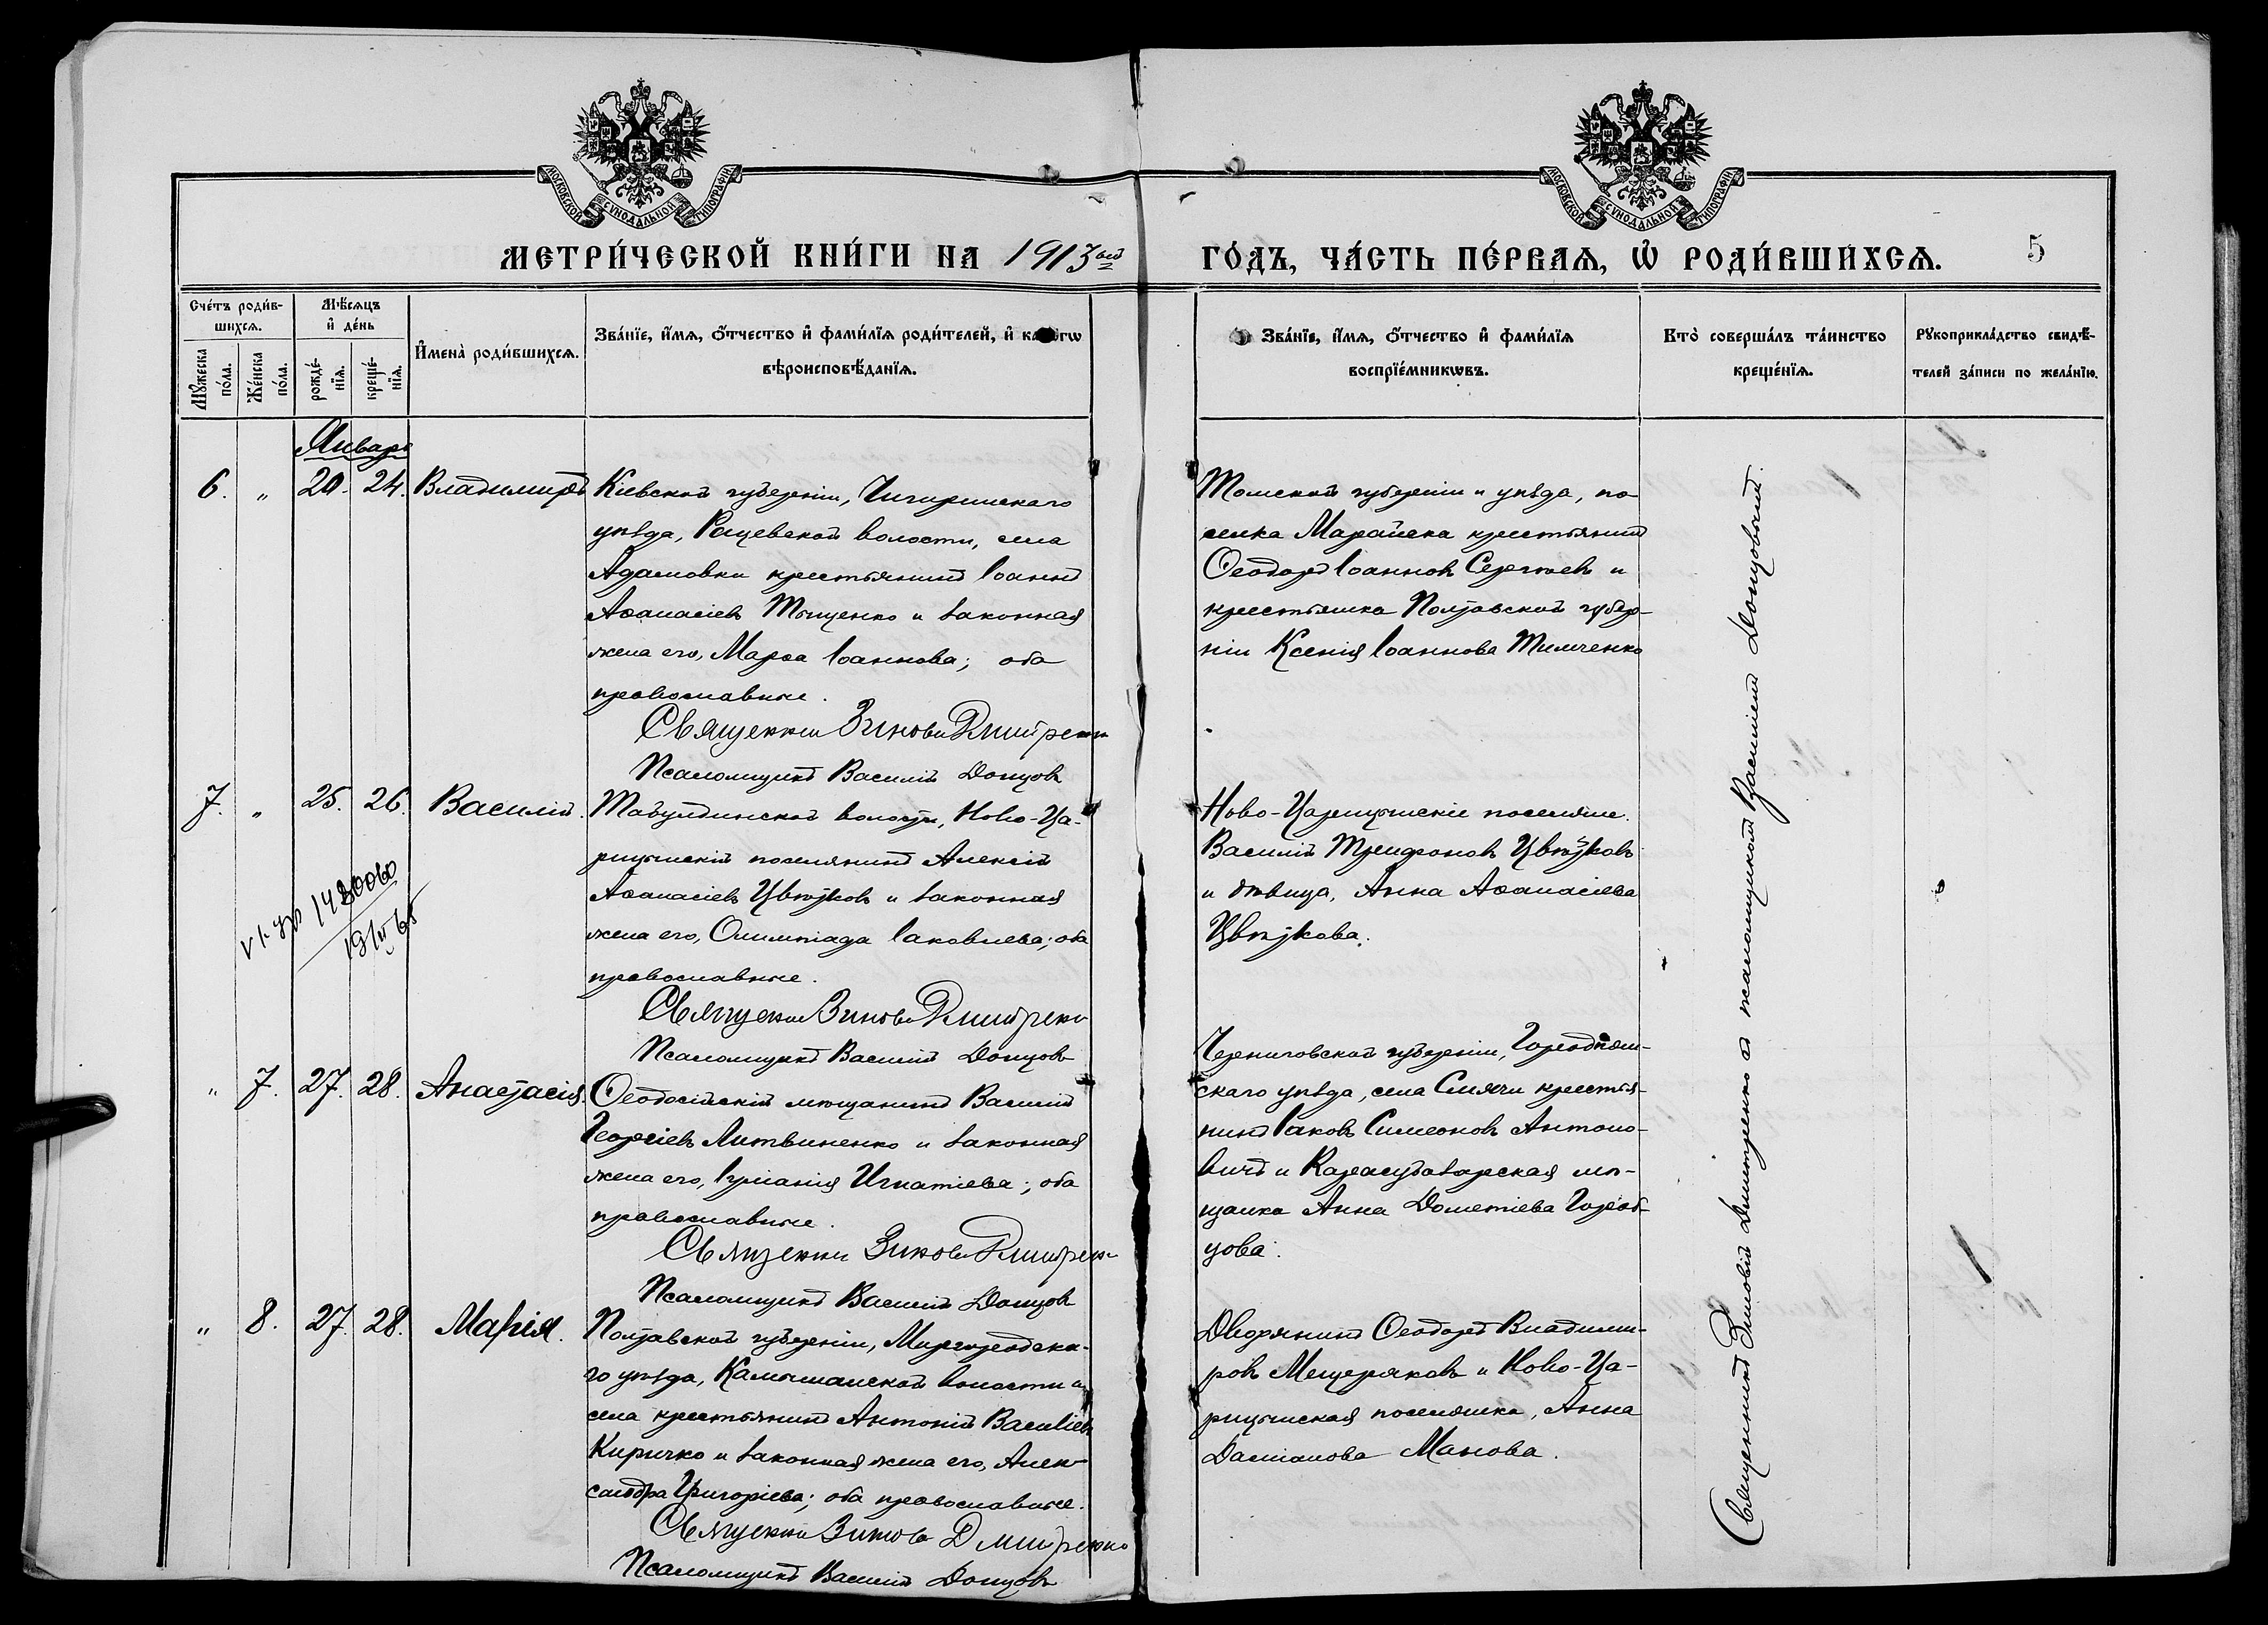 МОСКОВСКОЙ СѴНОДАЛЬНОЙ ТИПОГРАФІИ
МОСКОВСКОЙ СѴНОДАЛЬНОЙ ТИПОГРАФІИ
МЕТРИ́ЧЕСКОЙ КНИ́ГИ НА 1913ый ГО́ДЪ, ЧА́СТЬ ПЕ́РВАѦ, Ѽ РОДИ́ВШИХСѦ.
5
Сче́тъ роди́в-
шихсѧ.
Мꙋ́жеска по́ла.
Же́нска по́ла.
Мѣ́сѧцъ
и҆ де́нь
рожде́-
нїѧ.
креще́-
нїѧ.
И҆мена̀ роди́вшихсѧ.
Зва́нїе, и҆́мѧ, ѻ҆́тчество и҆ фами́лїѧ роди́телей, и҆ како́гѡ
вѣроисповѣ́данїѧ.
Зва́нїе, и҆́мѧ, ѻ҆́тчество и҆ фами́лїѧ
воспрїе́мникѡвъ.
Кто̀ соверша́лъ та́инство
креще́нїѧ.
Рꙋкоприкла́дство свидѣ́-
телей за́писи по жела́нїю.
Январь
6. " 20. 24. Владимиръ
Кіевской губерніи, Чигиринскаго
уѣзда, Рацевской волости, села
Адамовки крестьянинъ Іоаннъ
Аѳанасіевъ Тыщенко и законная
жена его, Марѳа Іоаннова; оба
православные.
Священник Зиновий Дмитренко
Псаломщикъ Василій Донцовъ
Томской губерніи и уѣзда, по-
селка Марайска крестьянинъ
Ѳеодоръ Іоанновъ Сергѣевъ и
крестьянка Полтавской губер-
ніи Ксенія Іоаннова Тимченко
7. " 25. 26. Василій.
14 80060
Табулдинской волости, Ново-Ца-
рицынскій поселянинъ Алексій
Аѳанасіевъ Цвѣтковъ и законная
жена его, Олимпіада Іаковлева; оба
православные.
Священник Зиновий Дмитренко
Псаломщикъ Василій Донцовъ
Ново-Царицынскіе поселяне.
Василій Трифоновъ Цвѣтковъ
и дѣвица, Анна Аѳанасіева
Цвѣткова.
" 7. 27. 28. Анастасія.
Ѳеодосійскій мѣщанинъ Василій
Георгіевъ Литвиненко и законная
жена его, Іуліанія Игнатіева; оба
православные.
Священник Зиновий Дмитренко
Псаломщикъ Василій Донцовъ
Черниговской губерніи, Городнян-
скаго уѣзда, села Смячи крестья-
нинъ Іаковъ Симеоновъ Антоно-
вичъ и Карасубазарская мѣ-
щанка Анна Дометіева Гороб-
цова.
" 8. 27. 28. Марія.
Полтавской губерніи, Миргородска-
го уѣзда, Камышанской волости и
села крестьянинъ Антоній Василіевъ
Киричко и законная жена его, Алек-
сандра Григоріева; оба православные.
Священник Зиновий Дмитренко
Псаломщикъ Василій Донцовъ
Дворянинъ Ѳеодоръ Владими-
ровъ Мещеряковъ и Ново-Ца-
рицынская поселянка, Анна
Даміанова Манова.
Священникъ Зиновій Дмитренко съ псаломщикомъ Василіемъ Донцовымъ.